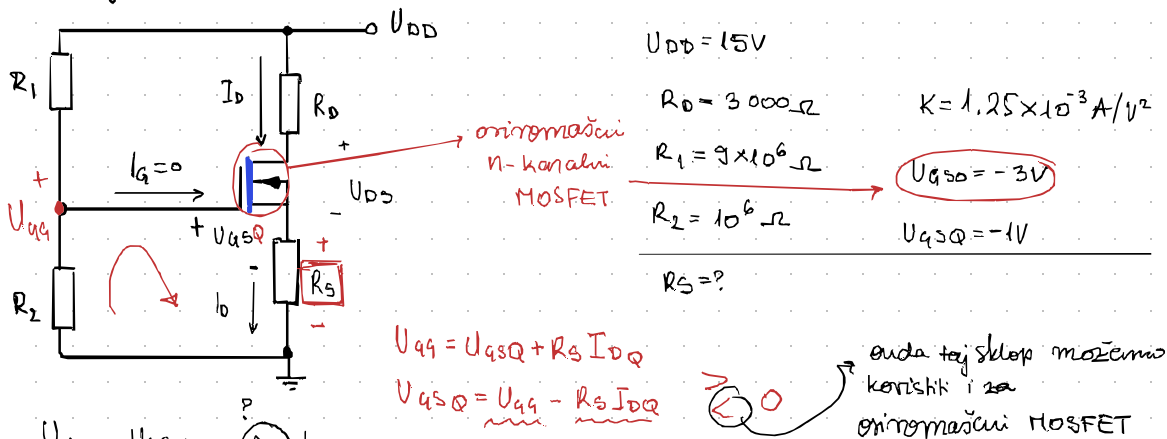 U_DD
R_1
I_D
R_D
+
I_G=0
+
U_GG
+ U_GSQ
-
U_DS
-
+
R_S
-
R_2
I_D
osiromašni
n-kanalni
MOSFET
U_DD = 15V
R_D = 3 000 Ω
R_1 = 9×10^6 Ω
R_2 = 10^6 Ω
K = 1.25×10^-3 A/V^2
U_GS0 = -3V
U_GSQ = -1V
R_S = ?
U_GG = U_GSQ + R_S I_DQ
U_GSQ = U_GG - R_S I_DQ > < 0
onda taj sklop možemo
koristiti i za
osiromašni MOSFET
?